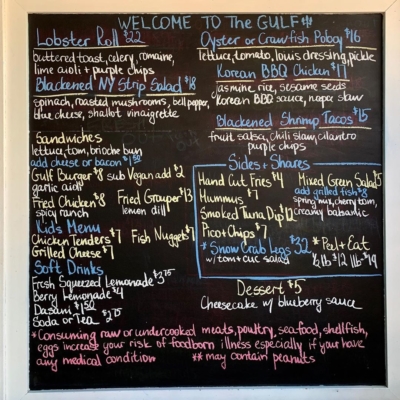 WELCOME TO THE GULF
Lobster Roll $22
buttered toast, celery, romaine,
lime aioli + purple chips
Blackened NY Strip Salad $18
spinach, roasted mushrooms, bell pepper,
blue cheese, shallot vinaigrette
Oyster or Crawfish Poboy $16
lettuce, tomato, louis dressing, pickle
Korean BBQ Chicken $17
jasmine rice, sesame seeds
Korean BBQ sauce, napa slaw
Blackened Shrimp Tacos $15
fruit salsa, chili slaw, cilantro
purple chips
Sandwiches
lettuce, tom, brioche bun
add cheese or bacon $1.50
Gulf Burger $8 sub Vegan add $2
garlic aioli
Fried Chicken $8
spicy ranch
Fried Grouper $13
lemon dill
Kids Menu
Chicken Tenders $7 Fish Nuggets $7
Grilled Cheese $7
Soft Drinks
Fresh Squeezed Lemonade $3.75
Berry Lemonade $4
Dasani $1.50
Soda or Tea $2.75
Sides + Shares
Hand Cut Fries $4
Hummus $7
Smoked Tuna Dip $12
Pico + Chips $7
Mixed Green Salad $5
add grilled fish $8
spring mix, cherry tom,
creamy balsamic
*Snow Crab Legs $32
w/ tom + cuc salad
*Peel + Eat
½ lb. $12 1 lb. $19
Dessert $5
Cheesecake w/ blueberry sauce
*Consuming raw or undercooked meats, poultry, seafood, shellfish,
eggs increase your risk of foodborn illness especially if your have
any medical condition **may contain peanuts